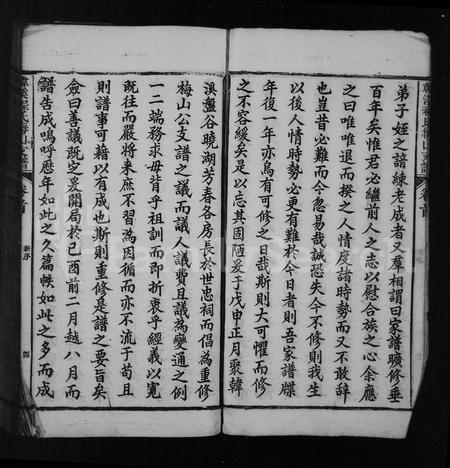 弟子姪之諳練老成者又羣相謂曰家譜曠修垂
百年矣惟君必繼前人之志以慰合族之心余應
之曰唯唯退而揆之人情度諸時勢而又不敢辞
也豈昔必難而今忽易哉誠恐失今不修則我生
以後人情時勢必更有難於今日者則吾家譜牒
年復一年亦烏有可修之日哉斯則大可懼而修
之不容緩矣是以忘其固陋爰于戊申正月聚韓
溪盤谷曉湖芳春各房長於世忠祠而倡為重修
梅山公支譜之議而議人議費且議為變通之例
一二端務求毋背乎祖訓而即折衷乎經義以寬
既往而嚴將来庶不習為因循而亦不流于苟且
則譜事可藉以有成也斯則重修是譜之要旨矣
僉曰善議既定爰開局於己酉前二月越八月而
譜告成嗚呼歷年如此之久篇帙如此之多而成
卷首
新序
四